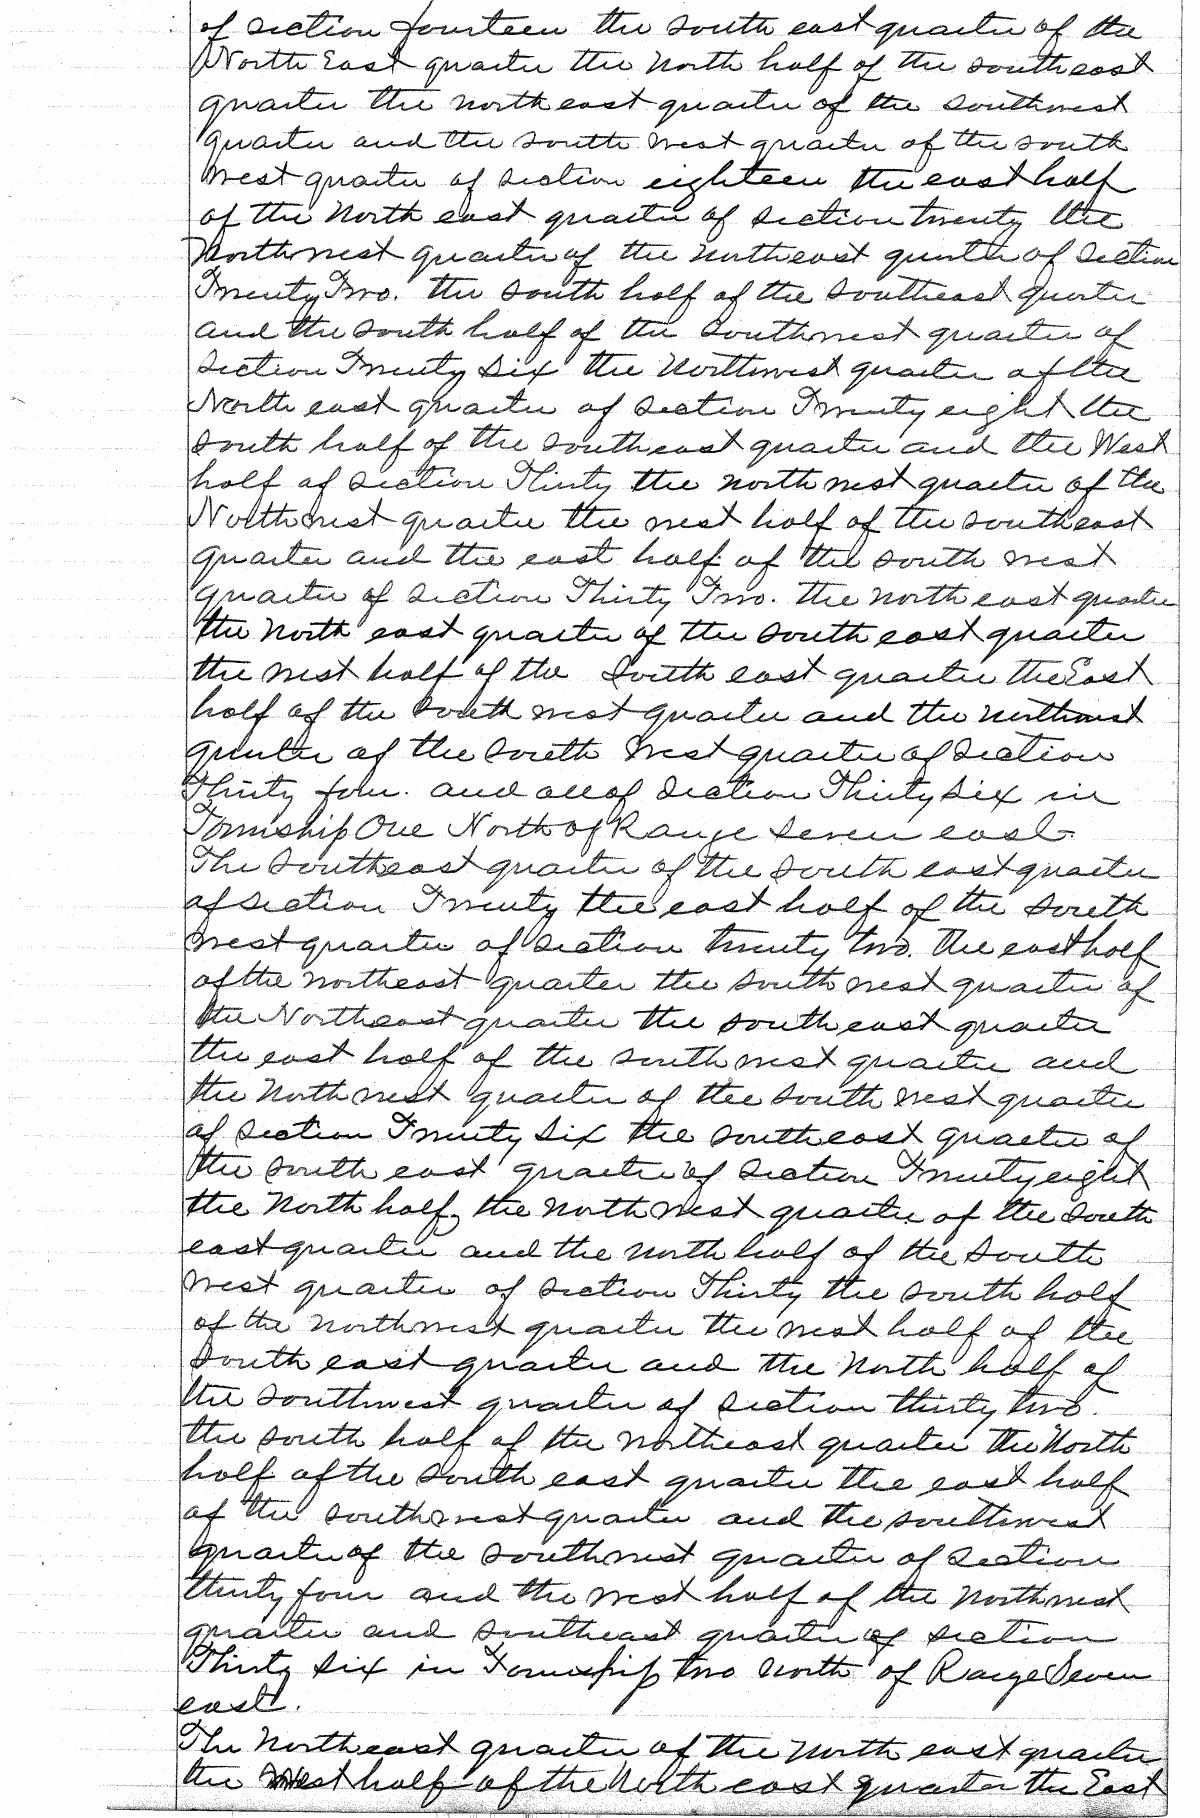 of section fourteen the south east quarter of the
North East quarter the North half of the southeast
quarter the north east quarter of the southwest
quarter and the south west quarter of the south
west quarter of section eighteen the east half
of the North east quarter of section twenty the
Northwest quarter of the Northeast quarter of section
Twenty Two. the south half of the southeast quarter
and the south half of the southwest quarter of
section Twenty Six the Northwest quarter of the
North east quarter of section Twenty eight the
south half of the southeast quarter and the West
half of section Thirty the north west quarter of the
Northwest quarter the west half of the southeast
quarter and the east half of the south west
quarter of section Thirty Two. the north east quarter
the North east quarter of the south east quarter
the west half of the South east quarter the East
half of the South west quarter and the northwest
quarter of the South West quarter of section
Thirty four. and all of section Thirty Six in
Township One North of Range Seven east
The Southeast quarter of the south east quarter
of section Twenty the east half of the south
west quarter of section twenty two. the east half
of the northeast quarter the south west quarter of
the Northeast quarter the south east quarter
the east half of the southwest quarter and
the North west quarter of the south west quarter
of section Twenty Six the southeast quarter of
the south east quarter of section Twenty eight
the North half, the north West quarter of the south
east quarter and the north half of the South
West quarter of section Thirty the south half
of the northwest quarter the west half of the
South east quarter and the North half of
the southwest quarter of section thirty two.
the south half of the northeast quarter the North
half of the South east quarter the east half
of the southwest quarter and the southwest
quarter of the southwest quarter of section
thirty four and the west half of the Northwest
quarter and southeast quarter of section
Thirty Six in Township two north of Range Seven
east.
The Northeast quarter of the North east quarter
the West half of the North east quarter the East